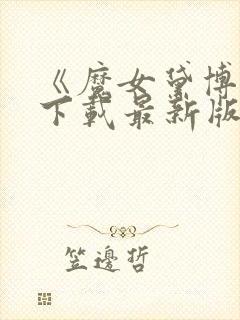 《魔女黛博
下载最新版
笠邊哲